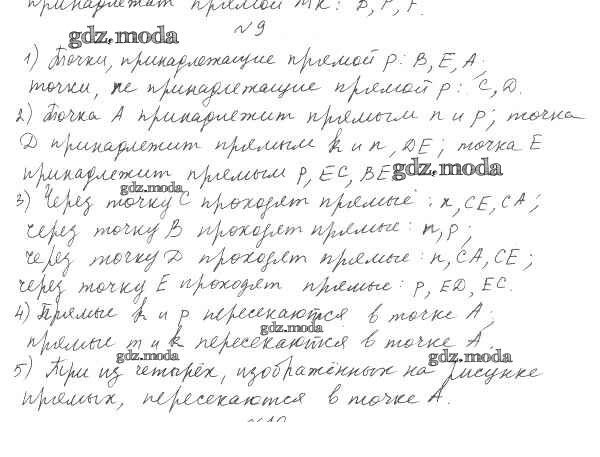 принадлежат прямой MK: D, P, F.
gdz.moda
№9
1) Точки, принадлежащие прямой p: B, E, A;
точки, не принадлежащие прямой p: C, D.
2) Точка A принадлежит прямым n и p; точка
D принадлежит прямым k и n, DE; точка E
принадлежит прямым p, EC, BE
gdz.moda
gdz.moda
3) Через точку C проходят прямые: к, CE, CA;
через точку B проходят прямые: m, p;
через точку D проходят прямые: n, CA, CE;
через точку E проходят прямые: p, ED, EC.
4) Прямые k и p пересекаются в точке A;
gdz.moda
прямые m и k пересекаются в точке A.
gdz.moda
gdz.moda
5) Три из четырёх, изображённых на рисунке
прямых, пересекаются в точке A.